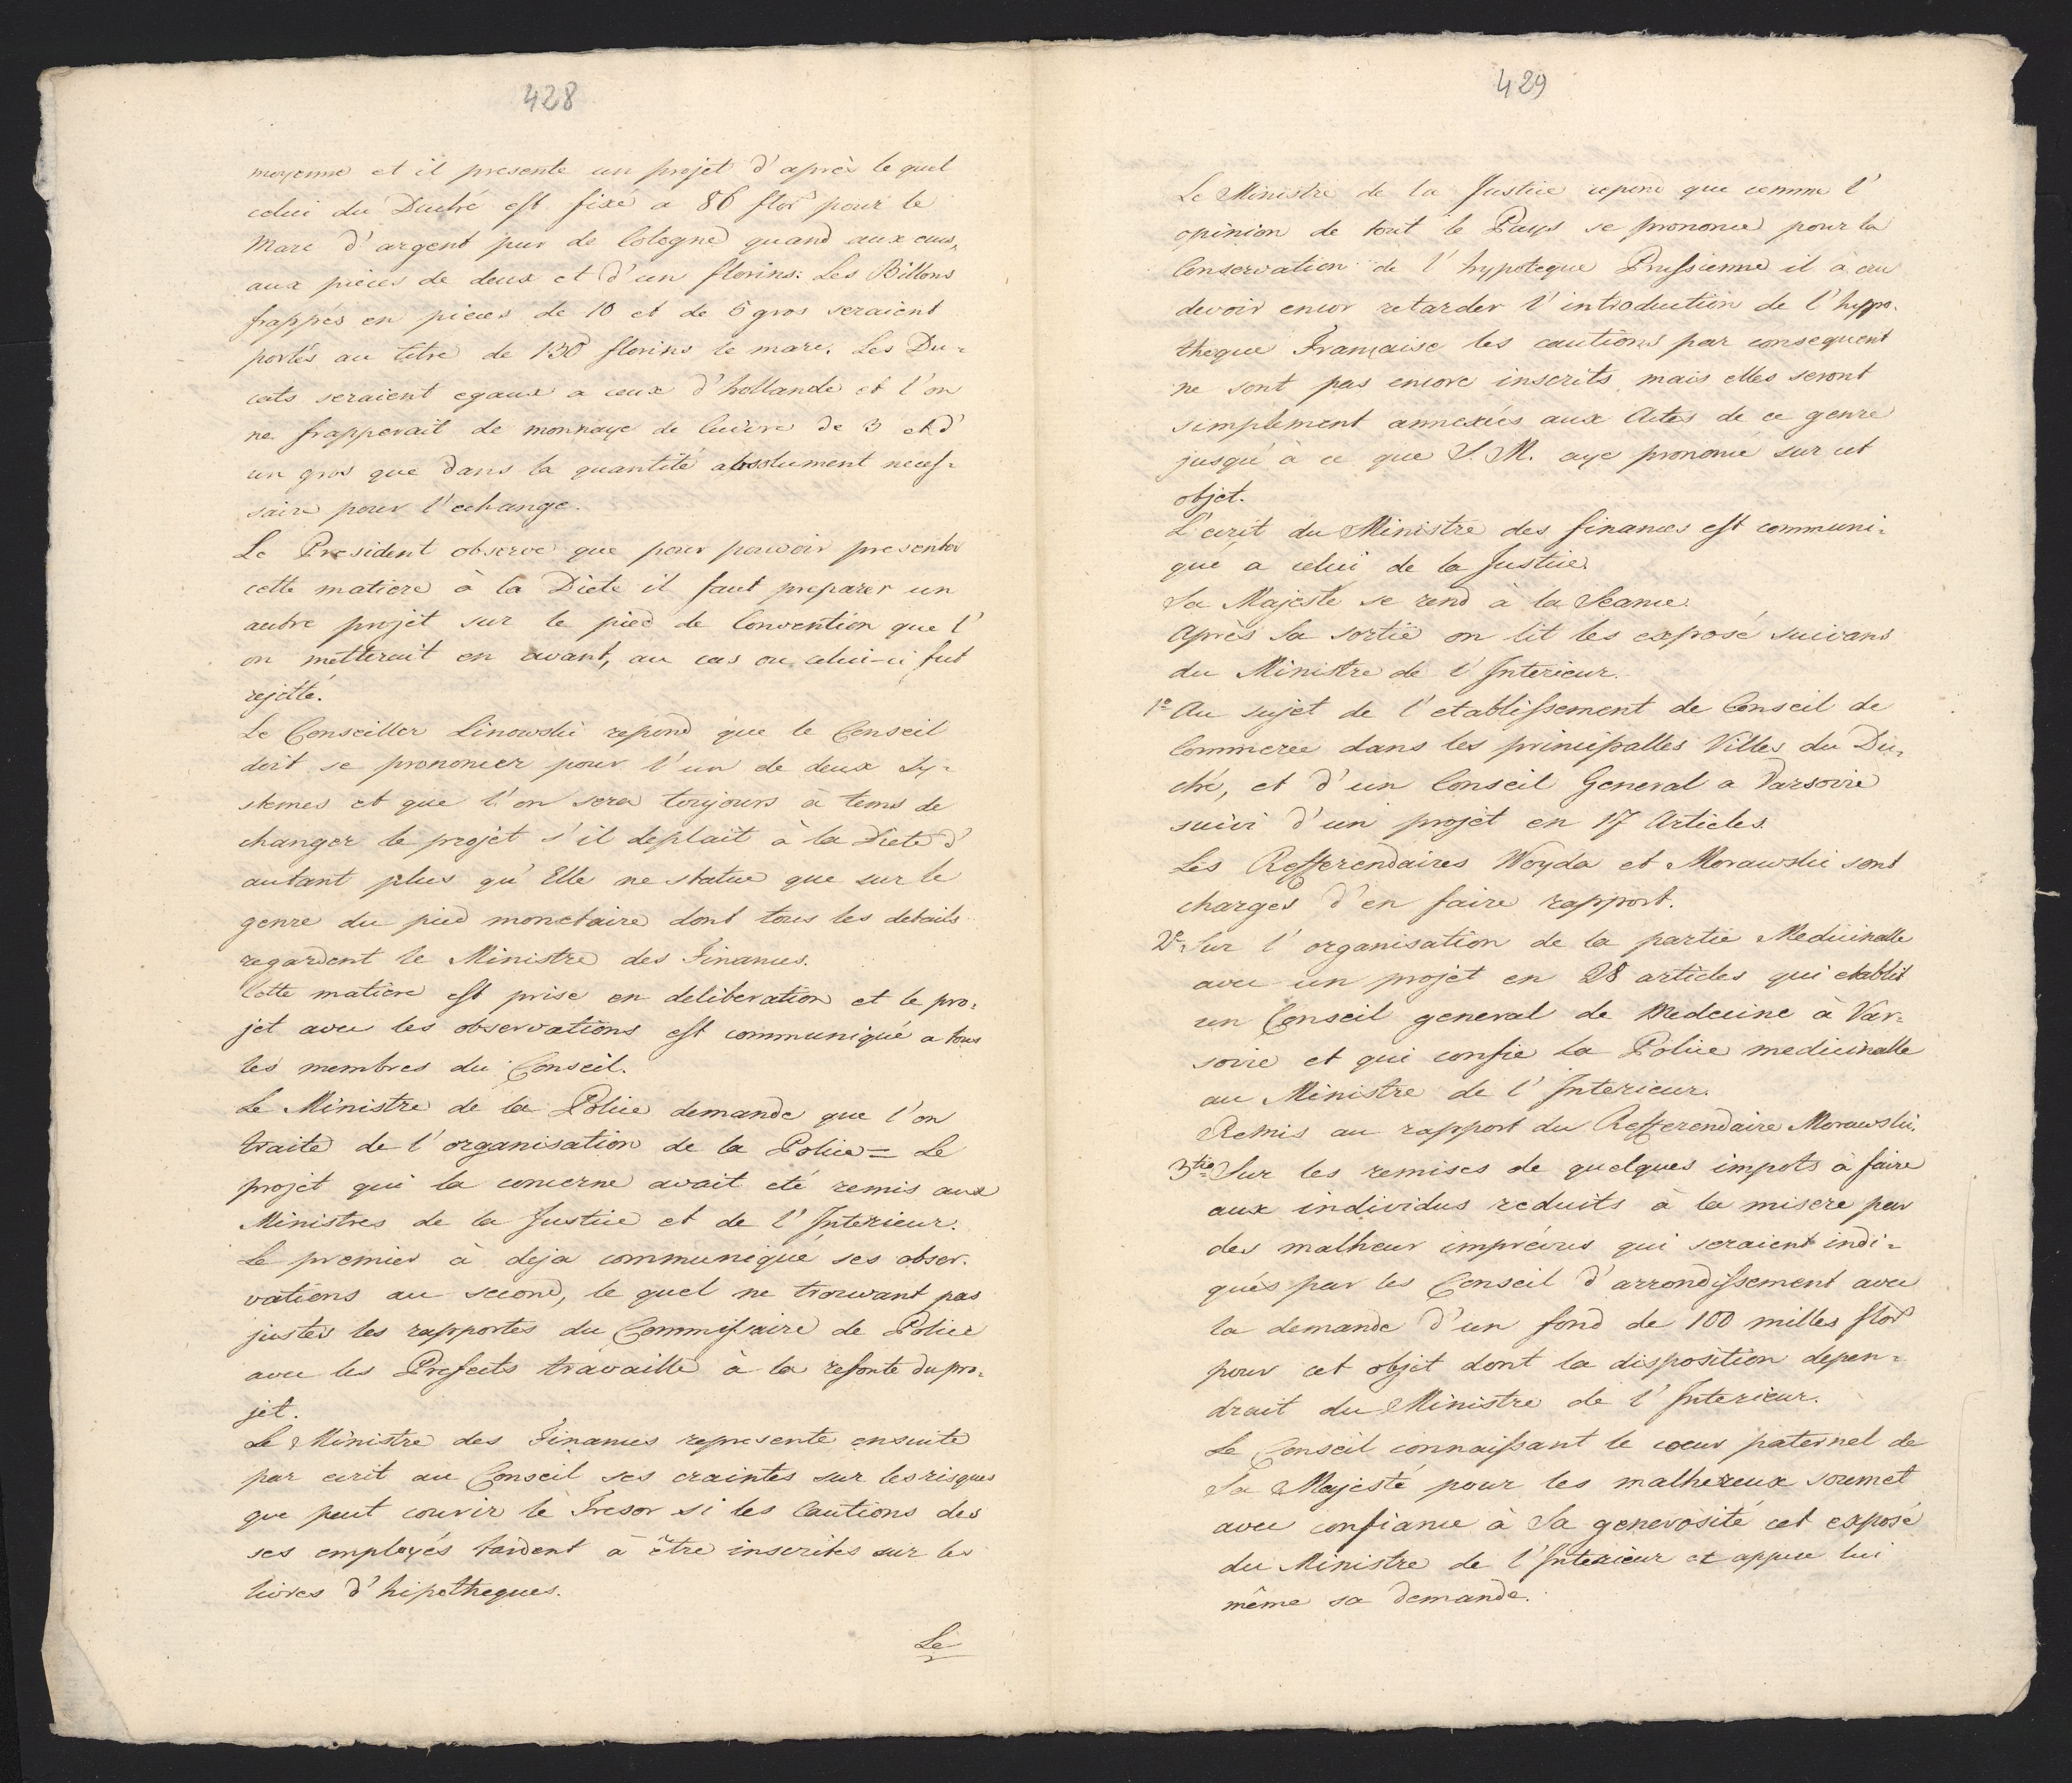 428
moyenne et il presente un projet d'après le quel
celui du Duché est fixé a 86 flor pour le
Marc d'argent pur de Cologne quand aux ecus,
aux pièces de deux et d'un florins: Les Billons
frappés en pieces de 10 et de 5 gros seraient
portés au titre de 130 florins le marc. Les Du-
cats seraient egaux a ceux d'hollande et l'on
ne frapperait de monnaye de Cuivre de 3 et d'
un gros que dans la quantité absolument neces-
saire pour l'echange.
Le President observe que pour pouvoir presenter
cette matiere à la Diète il faut preparer un
autre projet sur le pied de Convention que l'
on metterait en avant, au cas ou celui-ci fut
rejetté.
Le Conseiller Linowski repond que le Conseil
doit se prononcer pour l'un de deux Sy-
stemes et que l'on sera toujours à tems de
changer le projet s'il deplait à la Diete d'
autant plus qu'Elle ne statue que sur le
genre du pied monetaire dont tous les details
regardent le Ministre des Finances.
Cette matiere est prise en deliberation et le pro-
jet avec les observations est communiqué a tous
les membres du Conseil.
Le Ministre de la Police demande que l'on
traite de l'organisation de la Police = Le
projet qui la concerne avait eté remis aux
Ministres de la Justice et de l'Interieur.
Le premier à deja communiqué ses obser-
vations au second, le quel ne trouvant pas
justes les rapportes du Commissaire de Police
avec les Prefects travaille à la refonte du pro-
jet.
Le Ministre des Finances represente ensuite
par ecrit au Conseil ses craintes sur les risques
que peut courir le Tresor si les Cautions des
ses employés tardent à être inscrites sur les
livres d'hipotheques.
Le
429
Le Ministre de la Justice repond que comme l'
opinion de tout le Pays se prononce pour la
Conservation de l'hypoteque Prussienne il à cru
devoir encor retarder l'introduction de l'hypo-
theque Française les cautions par consequent
ne sont pas encore inscrits mais elles seront
simplement annexées aux Actes de ce genre
jusqu'à ce que S. M. aye prononcé sur cet
objet.
L'ecrit du Ministre des finances est communi-
qué a celui de la Justice.
Sa Majesté se rend à la Seance.
Après Sa sortie on lit les exposé suivans
du Ministre de l'Interieur.
1º Au sujet de l'etablissement de Conseil de
Commerce dans les principalles Villes du Du-
ché, et d'un Conseil General a Varsovie
suivi d'un projet en 17 Articles.
Les Refferendaires Woyda et Morawski sont
charges d'en faire rapport.
2º Sur l'organisation de la partie Medicinalle
avec un projet en 28 articles qui etablit
un Conseil general de Medecine à Var-
sovie et qui confie la Police medicinalle
au Ministre de l'Interieur.
Remis au rapport du Refferendaire Morawski.
3tio Sur les remises de quelques impots à faire
aux individus reduits à la misere par
des malheur imprévus qui seraient indi-
qués par les Conseil d'arrondissement avec
la demande d'un fond de 100 milles flor
pour cet objet dont la disposition depen-
drait du Ministre de l'Interieur.
Le Conseil connaissant le coeur paternel de
Sa Majesté pour les malhereux soumet
avec confiance à Sa generosité cet exposé
du Ministre de l'Interieur et appue lui
même sa demande.